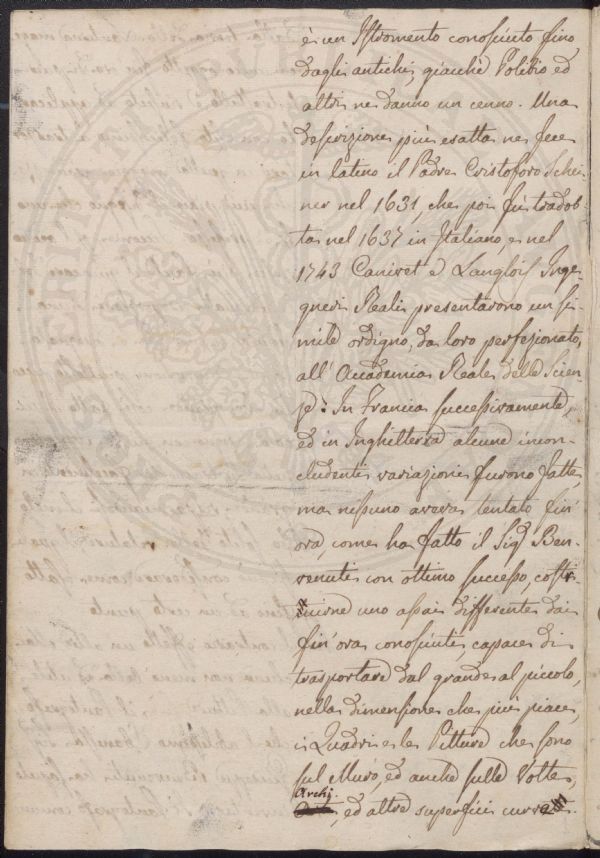 è un Istromento conosciuto fino
dagli antichi, giacchè Polibio ed
altri ne danno un cenno. Una
descrizione più esatta ne fece
in latino il Padre Cristoforo Schei-
ner nel 1631, che poi fù tradot-
to nel 1637 in Italiano, e nel
1743 Canivet e Langlois Inge-
gneri Reali presentarono un si-
mile ordigno, da loro perfezionato,
all' Accademia Reale delle Scien-
ze. In Francia successivamente,
ed in Inghilterra alcune incon-
cludenti variazioni furono fatte
ma nessuno aveva tentato fin'
ora, come ha fatto il Sig. Ben-
venuti con ottimo successo, costr
uirne uno assai differente dai
fin'ora conosciuti, capace di
trasportare dal grande al piccolo,
nella dimensione che più piace,
i Quadri e le Pitture che sono
sul Muro, ed anche sulle Volte,
Archi
, ed altre superficii curve